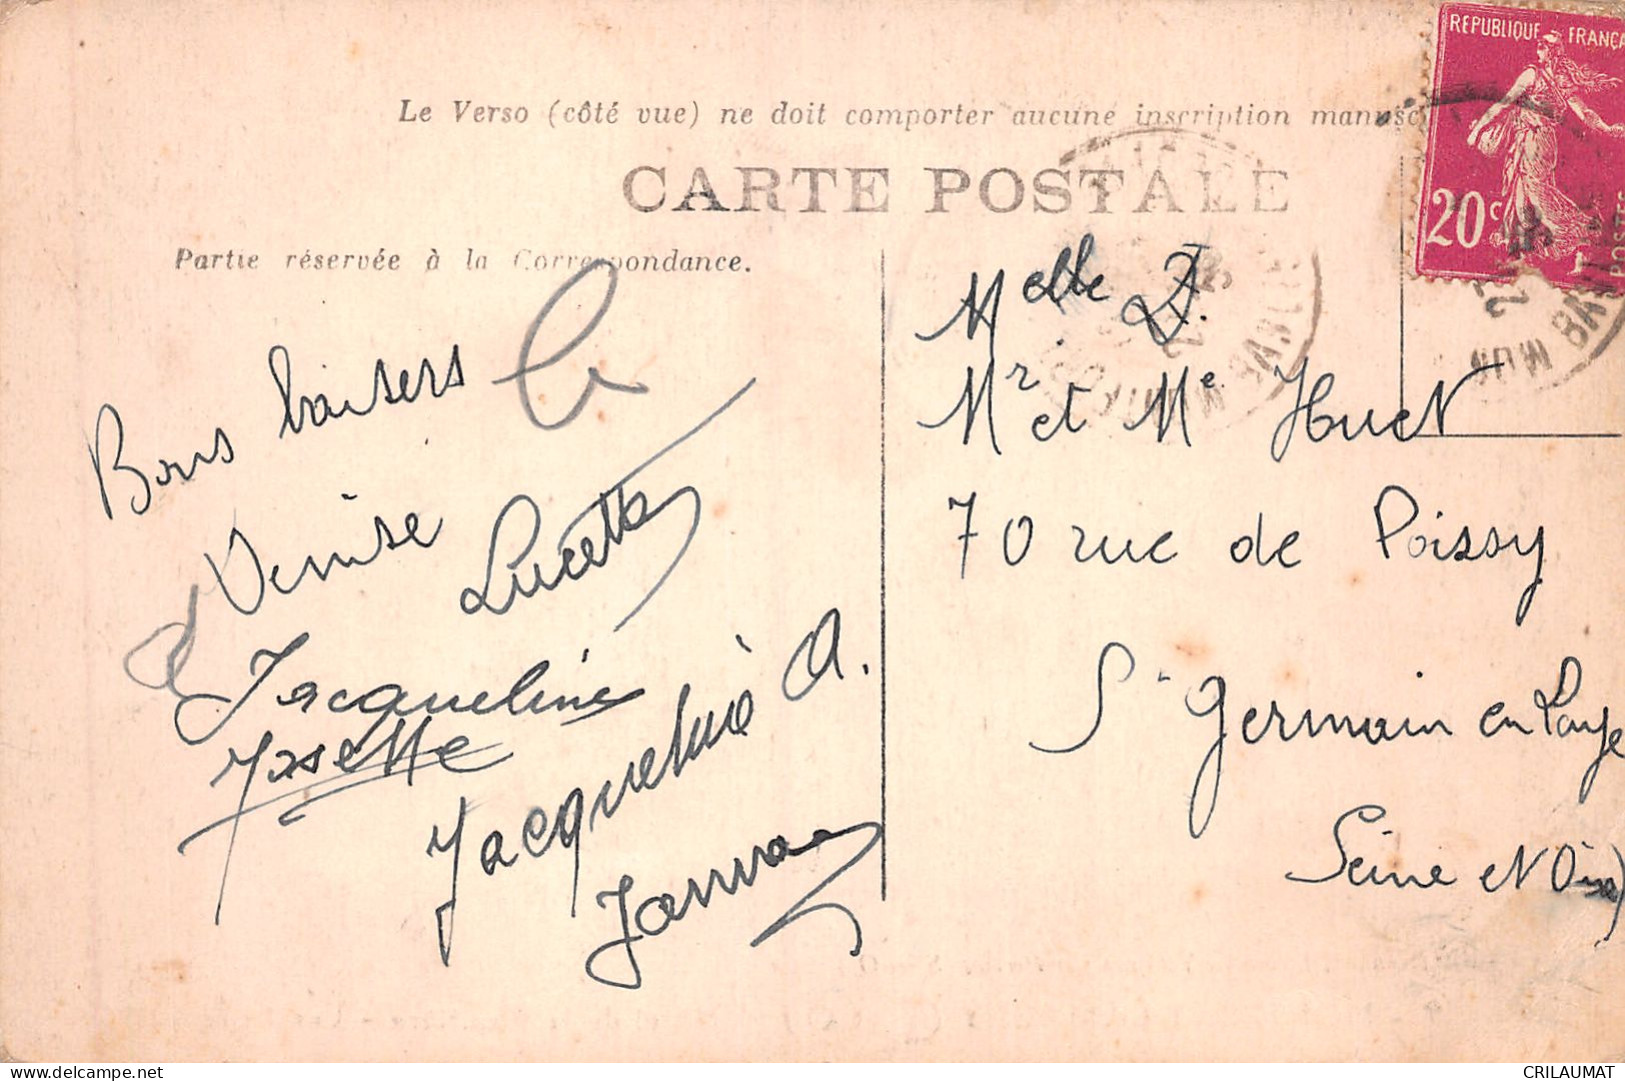 REPUBLIQUE FRANÇA
20c
POSTES
Le Verso (côté vue) ne doit comporter aucune inscription manusc
CARTE POSTALE
Partie réservée à la Correspondance.
Bons baisers
Denise
Lucette
Jacqueline
Josette
Jacqueline A.
Melle
Mr et Me Huet
70 rue de Poissy
St Germain en Laye
Seine et Oise)
CRILAUMAT